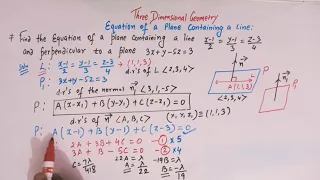 Three Dimensional Geometry
Equation of a Plane Containing a Line:
7 Find the Equation of a plane containing a line x-1/2 = y-1/3 = z-3/4
and perpendicular to a plane 3x+y-5z=3
Soln L: x-1/2 = y-1/3 = z-3/4 → (1,1,3)
d.r's of L <2,3,4>
P₁: 3x+y-5z=3
d.r's of the normal < ,1,-5>
P: A(x-x₁)+B(y-y₁)+C(z-z₁)=0
d.r's of n <A,B,C> (x₁,y₁,z₁)≡(1,1,3)
P: A(x-1)+B(y-1)+C(z-3)=0
2A+3B+4C=0 -① ×5
3A+B-5C=0 -② ×4
22A=λ -19B=λ
A=λ/22
<2,3,4>
n
A(1,1,3)
P
P₁